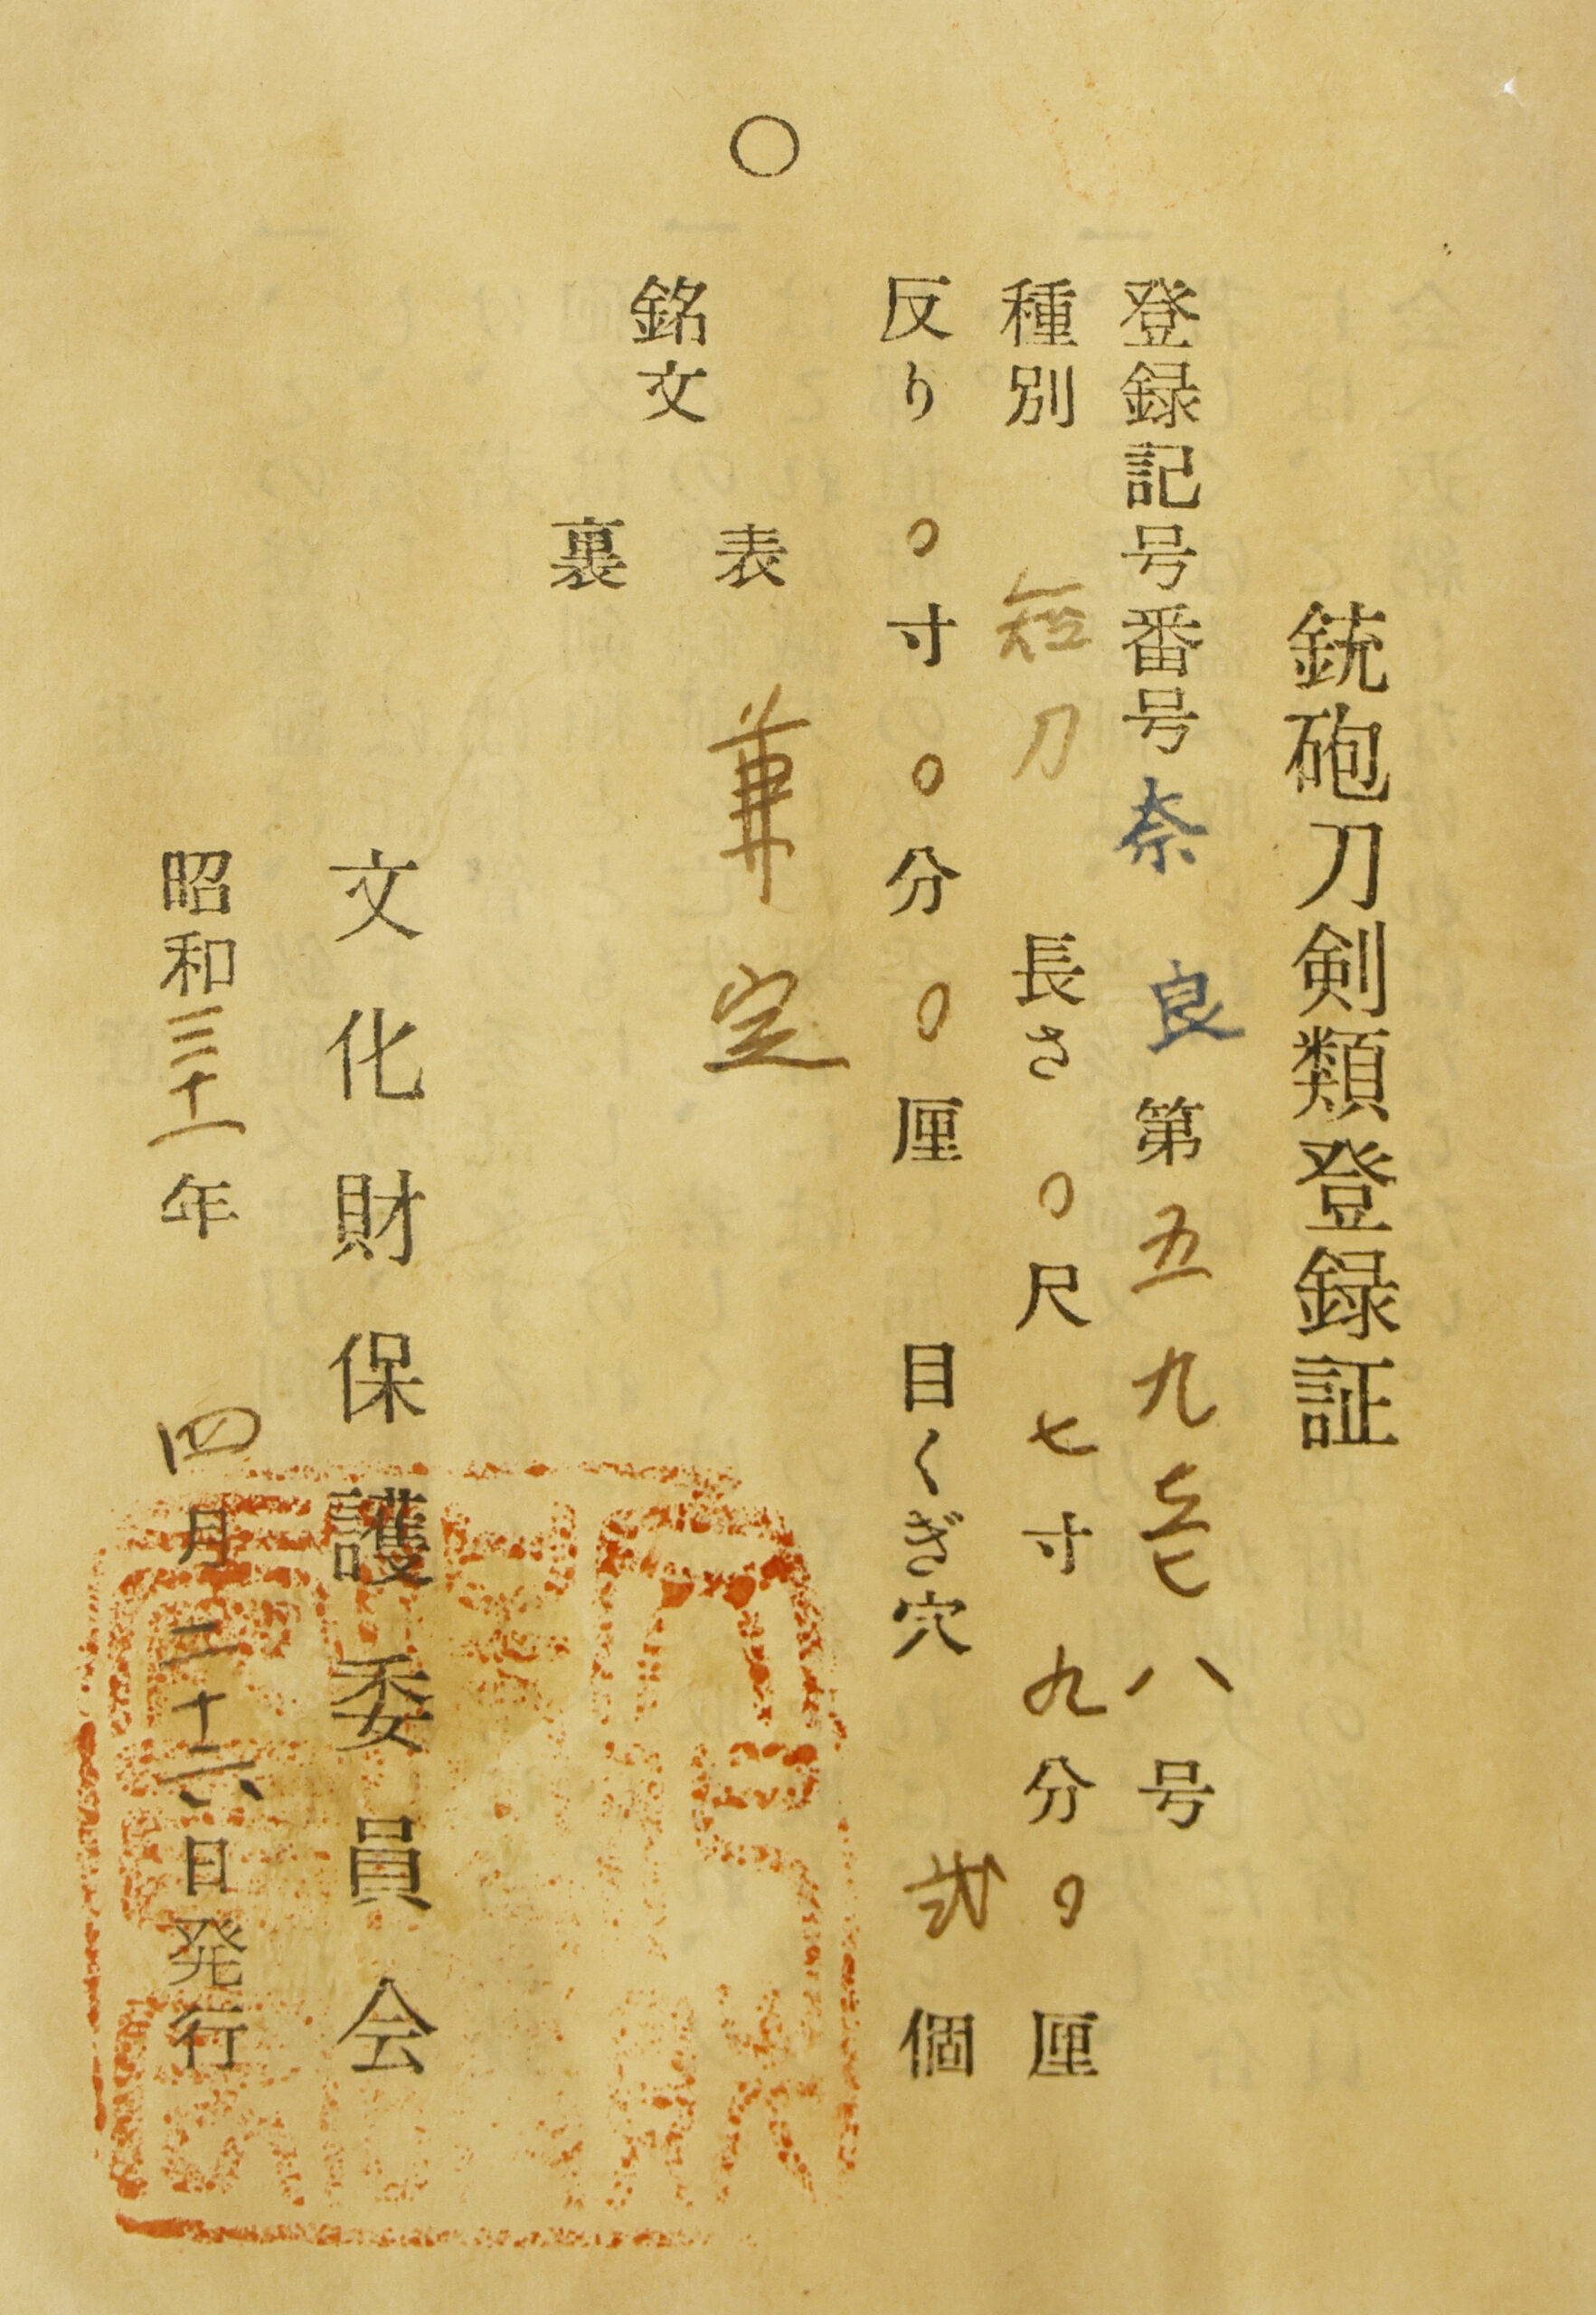 ○
銃砲刀剣類登録証
登録記号番号奈良第五九壱八号
種別 短刀 長さ 〇尺七寸九分〇厘
反り 〇寸〇分〇厘 目くぎ穴 弐個
銘文
表 兼定
裏
文化財保護委員会
昭和三十一年 四月二十六日発行